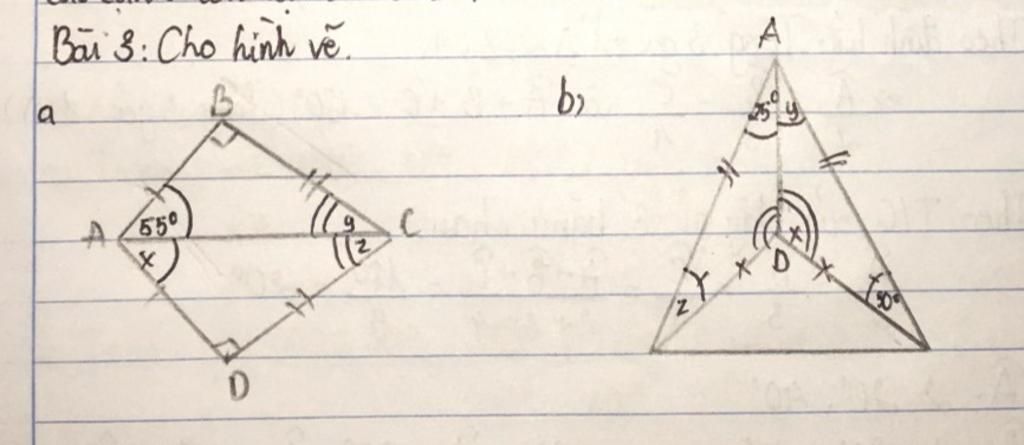 Bài 3: Cho hình vẽ.
a
b)
B
A
55°
x
y
z
C
D
A
25°
y
x
D
z
30°